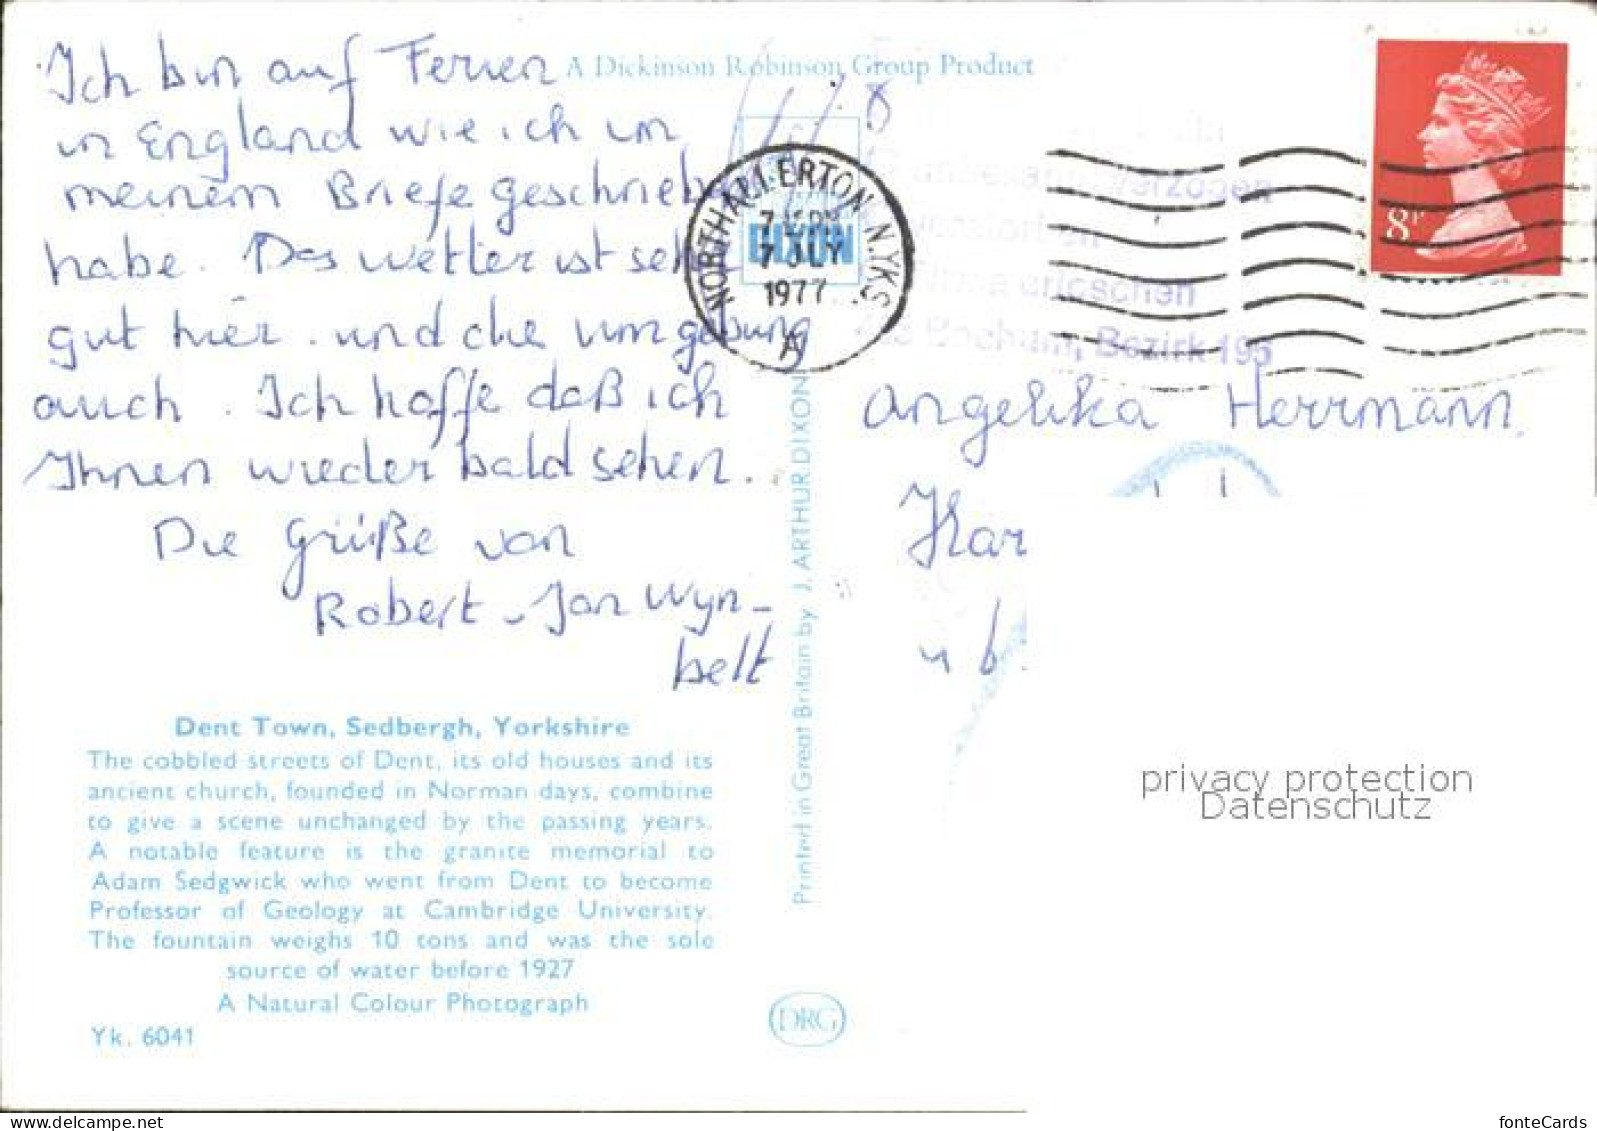 Ich bin auf Ferien
in England wie ich im
meinem Briefe geschrieben
habe. Das wetter ist sehr
gut hier. und die umgebung
auch. Ich hoffe daß ich
Ihnen wieder bald sehen.
Die Grüße von
Robert-Jan Wyn-
belt
Dent Town, Sedbergh, Yorkshire
The cobbled streets of Dent, its old houses and its
ancient church, founded in Norman days, combine
to give a scene unchanged by the passing years.
A notable feature is the granite memorial to
Adam Sedgwick who went from Dent to become
Professor of Geology at Cambridge University.
The fountain weighs 10 tons and was the sole
source of water before 1927
A Natural Colour Photograph
Yk. 6041
A Dickinson Robinson Group Product
DIXON
NORTHALLERTON N.YKS
7 JLY
1977
A
Printed in Great Britain by J. ARTHUR DIXON
DRG
8P
verzogen
erloschen
Bochum, Bezirk 195
Angelika Herrmann
Kar
privacy protection
Datenschutz
fonteCards